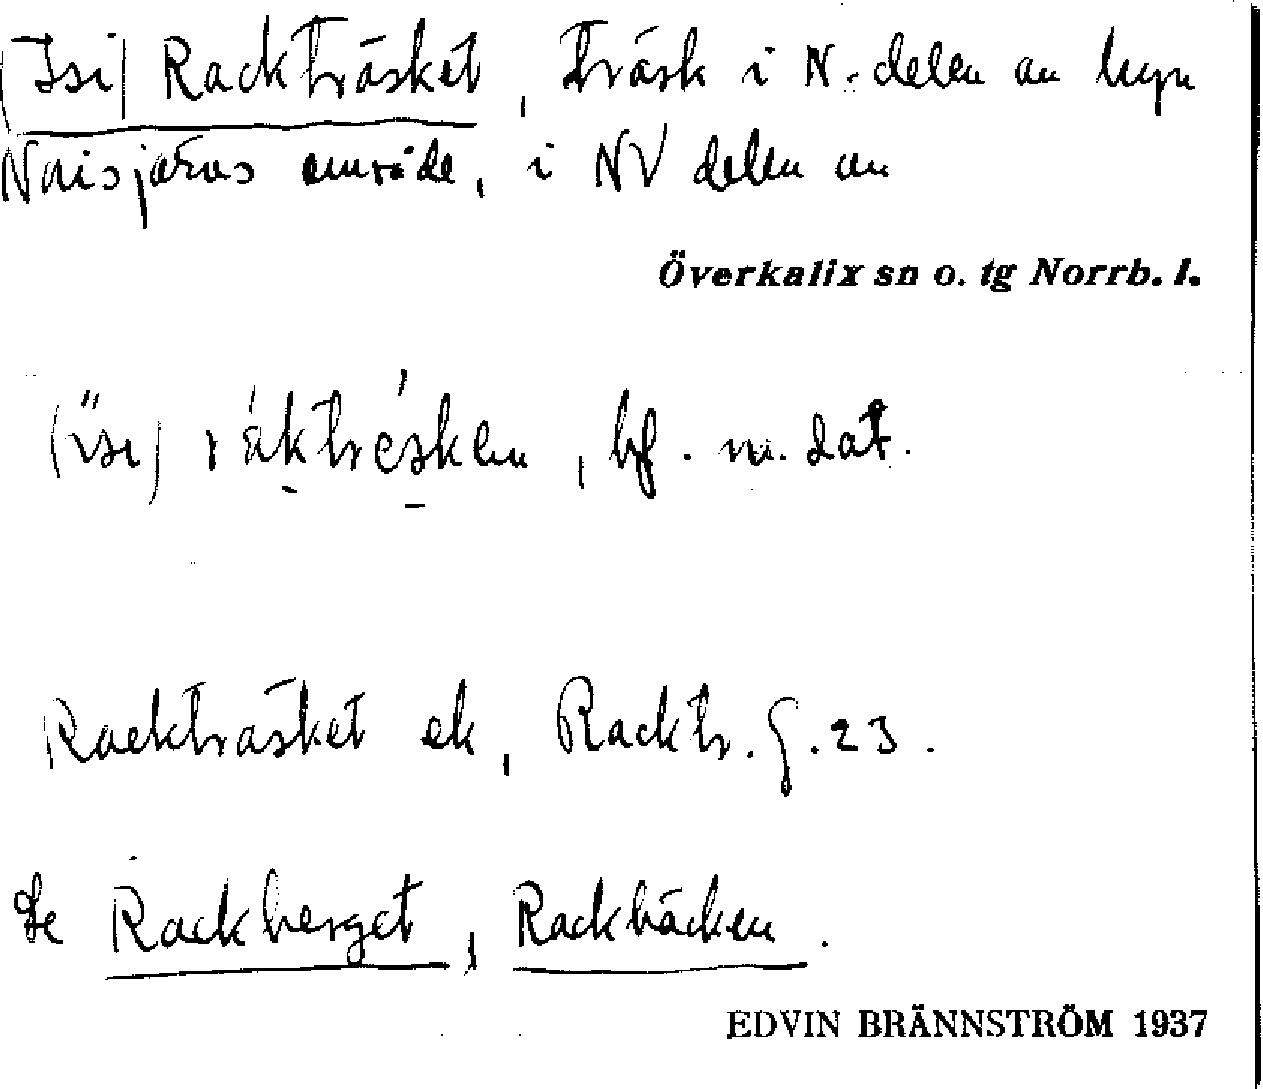 (Isi) Rackträsket, träsk i N. delen av byn
Naisjärvs område, i NV delen av
Överkalix sn o. tg Norrb. l.
bf. m. dat.
Rackträsket ek, Racktr. G. 23.
Se Rackberget, Rackbäcken.
EDVIN BRÄNNSTRÖM 1937